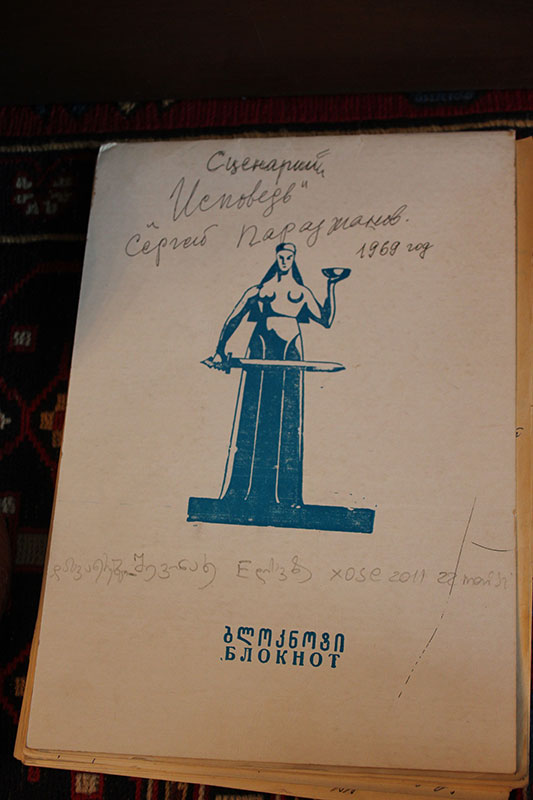 Сценарий
"Исповедь"
Сергей Параджанов.
1969 год
2011 22
ბლოკნოტი
БЛОКНОТ